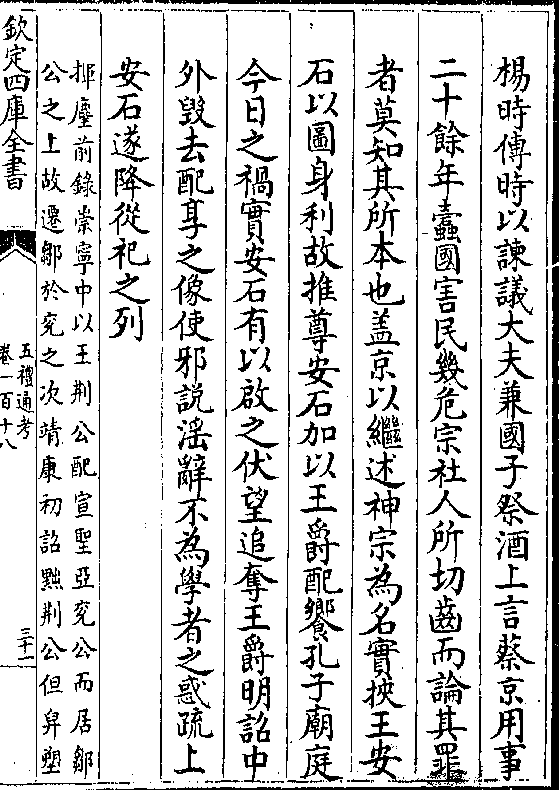 楊時傳時以諫議大夫兼國子祭酒上言蔡京用事
二十餘年蠧國害民幾危宗社人所切齒而論其罪
者莫知其所本也盖京以繼述神宗為名實挾王安
石以圖身利故推尊安石加以王爵配饗孔子廟庭
今日之禍實安石有以啟之伏望追奪王爵明詔中
外毀去配享之像使邪說淫辭不為學者之惑疏上
安石遂降從祀之列
揮麈前錄崇寧中以王荆公配宣聖亞兖公而居鄒
公之上故遷鄒於兖之次靖康初詔黜荆公但舁塑
欽定四庫全書
五禮通考
卷一百十八
三十一